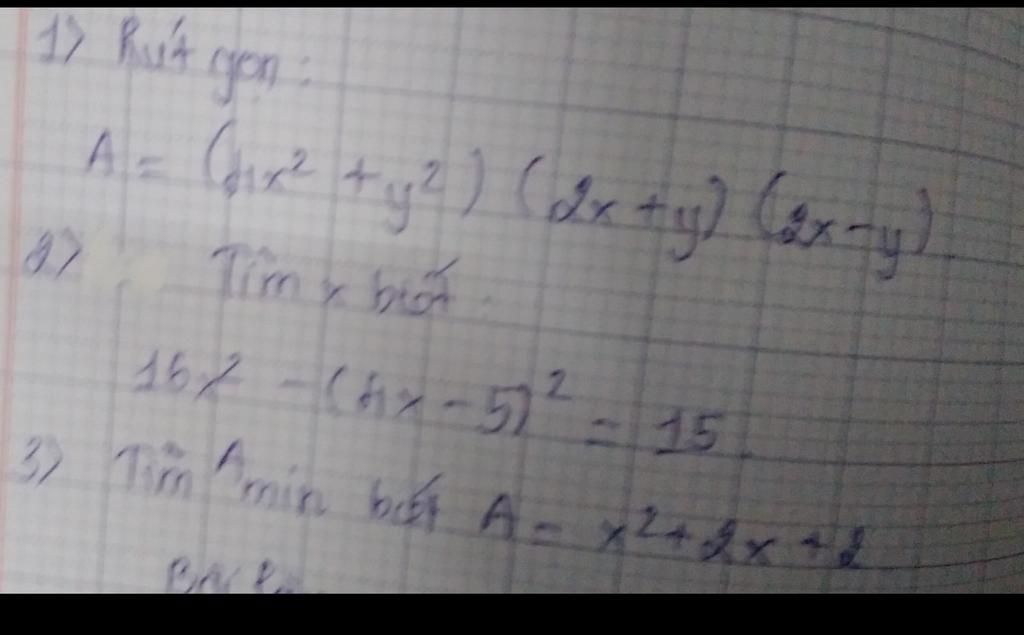 1) Rút gọn:
A = (4x² + y²) (2x + y) (2x - y)
2) Tìm x biết
16x² - (4x - 5)² = 15
3) Tìm A min biết A = x² + 2x + 2